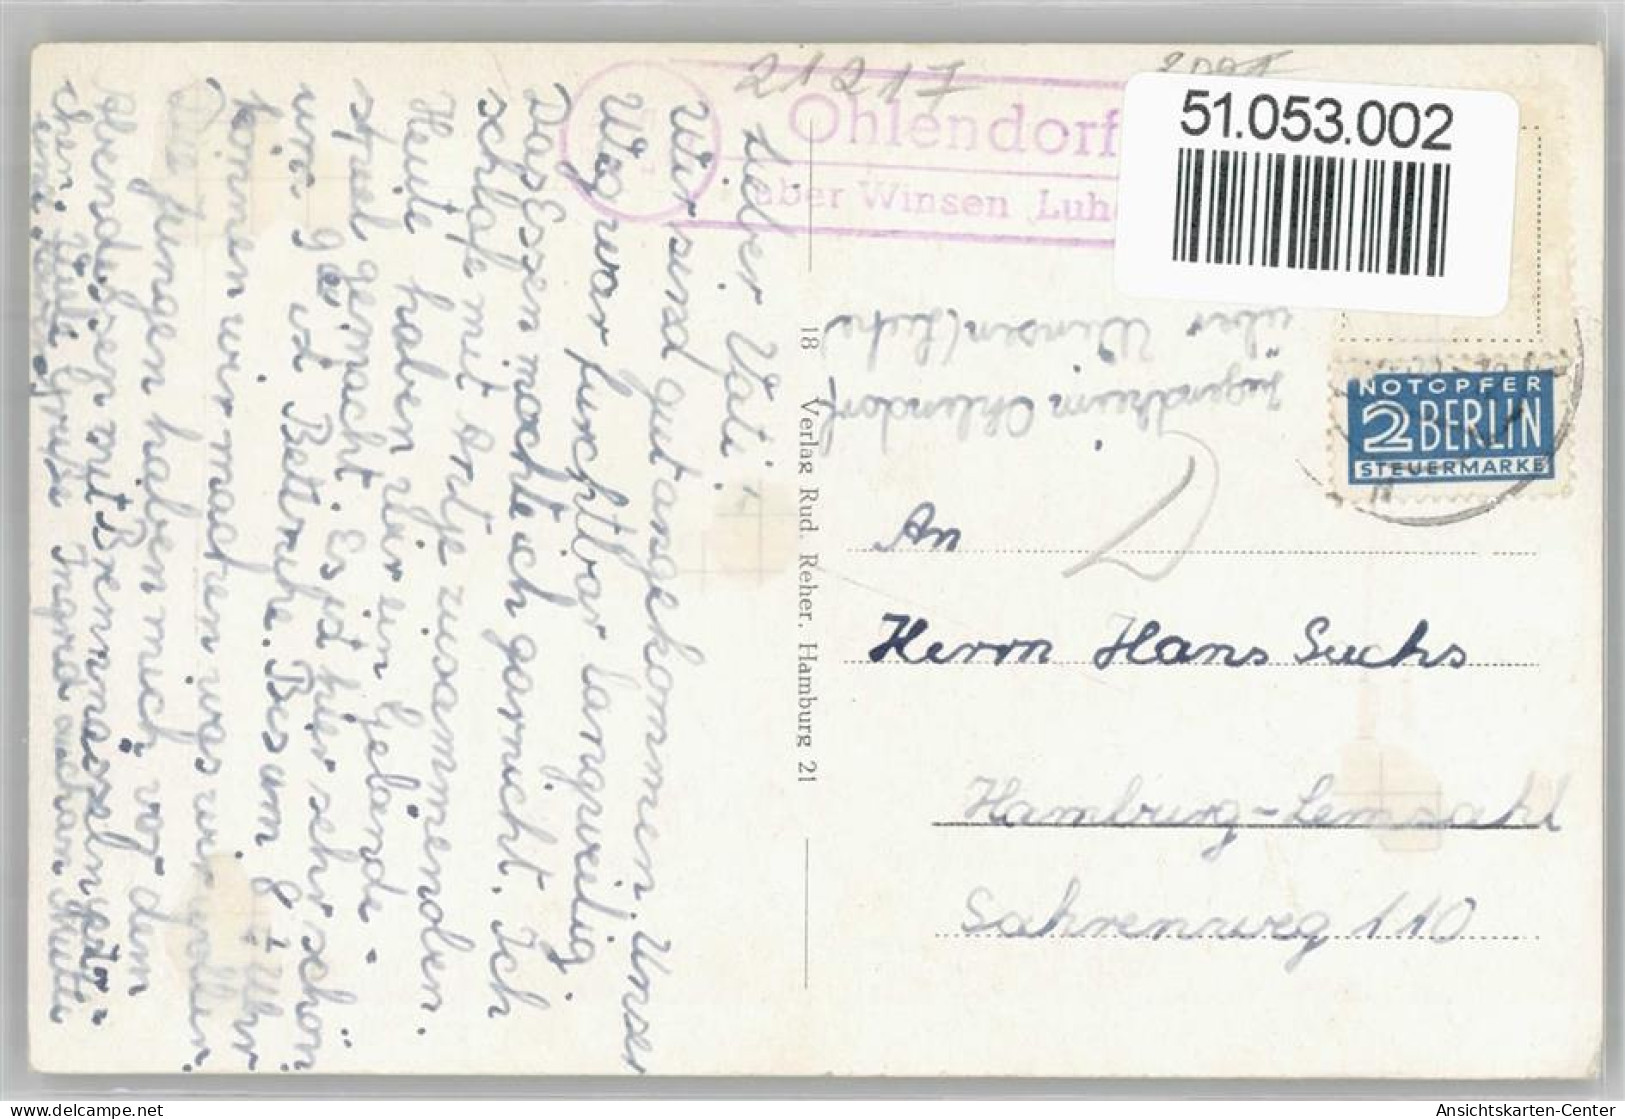 21217
Ohlendorf
über Winsen (Luhe
51.053.002
Lieber Vati!
Wir sind gut angekommen. Unser
Weg war furchtbar langweilig
Das Essen mochte ich garnicht. Ich
schlafe mit Antje zusammen den.
Heute haben wir ein Gelände-
spiel gemacht. Es ist hier sehr schön
um 9 ist Bettruhe. Bis um 8 1/2 Uhr
können wir machen was wir wollen.
Die Jungen haben mich vor dem
Abendessen mit Brennnesseln
viele Grüße Ingrid
18 Verlag Rud. Reher, Hamburg 21
Jugendheim Ohlendorf
über Winsen (Luhe)
NOTOPFER
2 BERLIN
STEUERMARKE
An
Herrn Hans Suchs
Hamburg-Lemsahl
Sahrenweg 110
Ansichtskarten-Center
www.delcampe.net